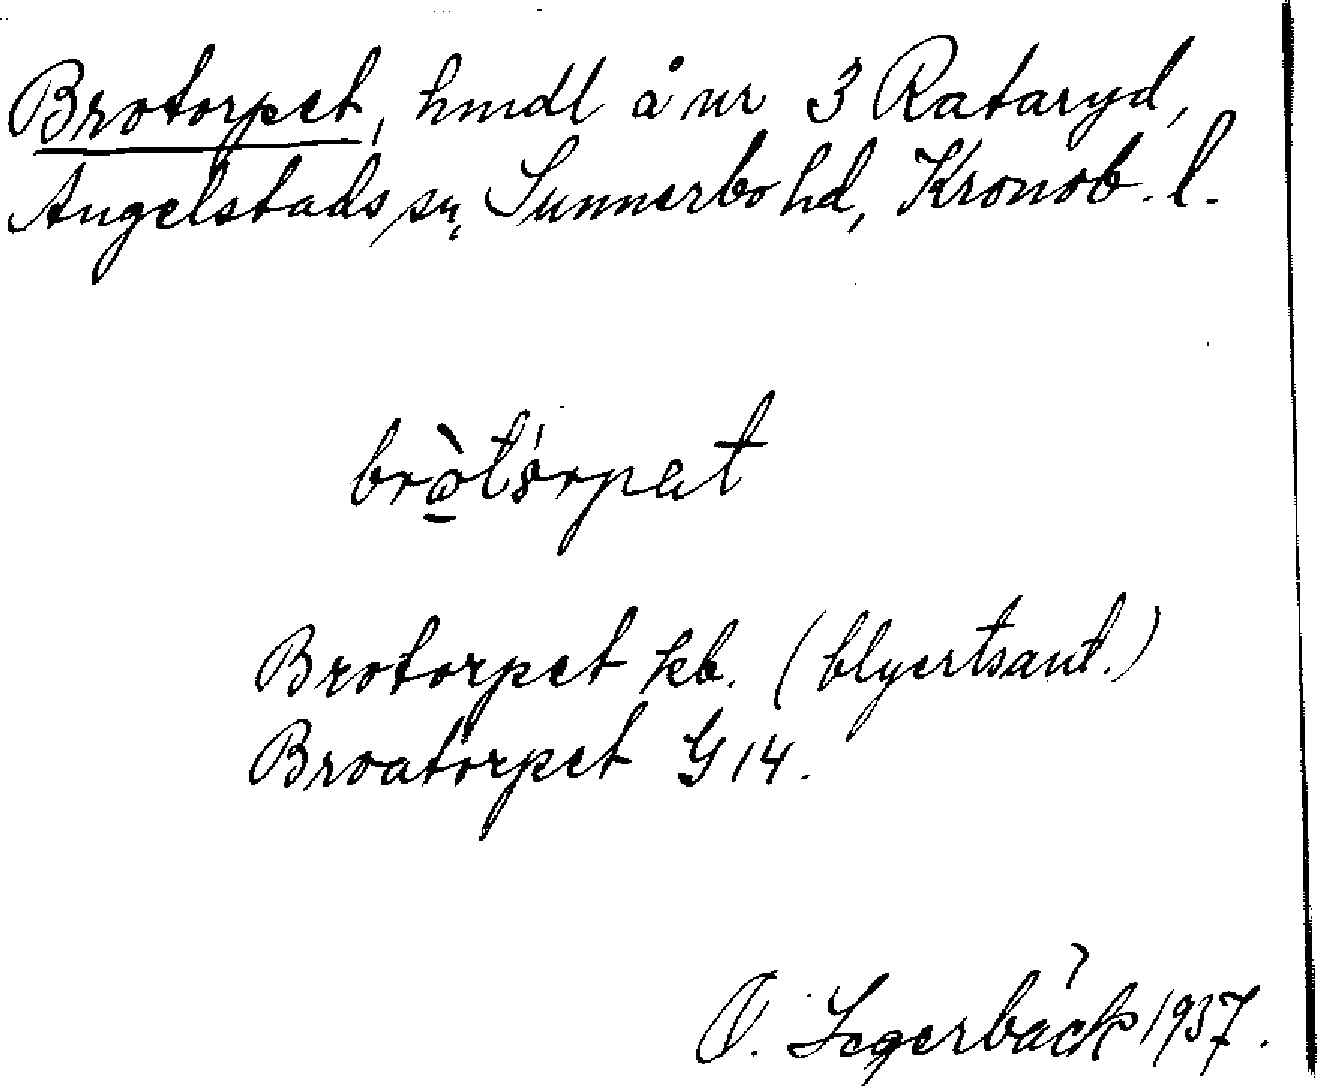 Brotorpet, hmdl å nr 3 Rataryd,
Angelstads sn, Sunnerbo hd, Kronob. l.
bròtórpet
Brotorpet kb. (blyertsant.)
Broatorpet G 14.
O. Segerbäck 1937.